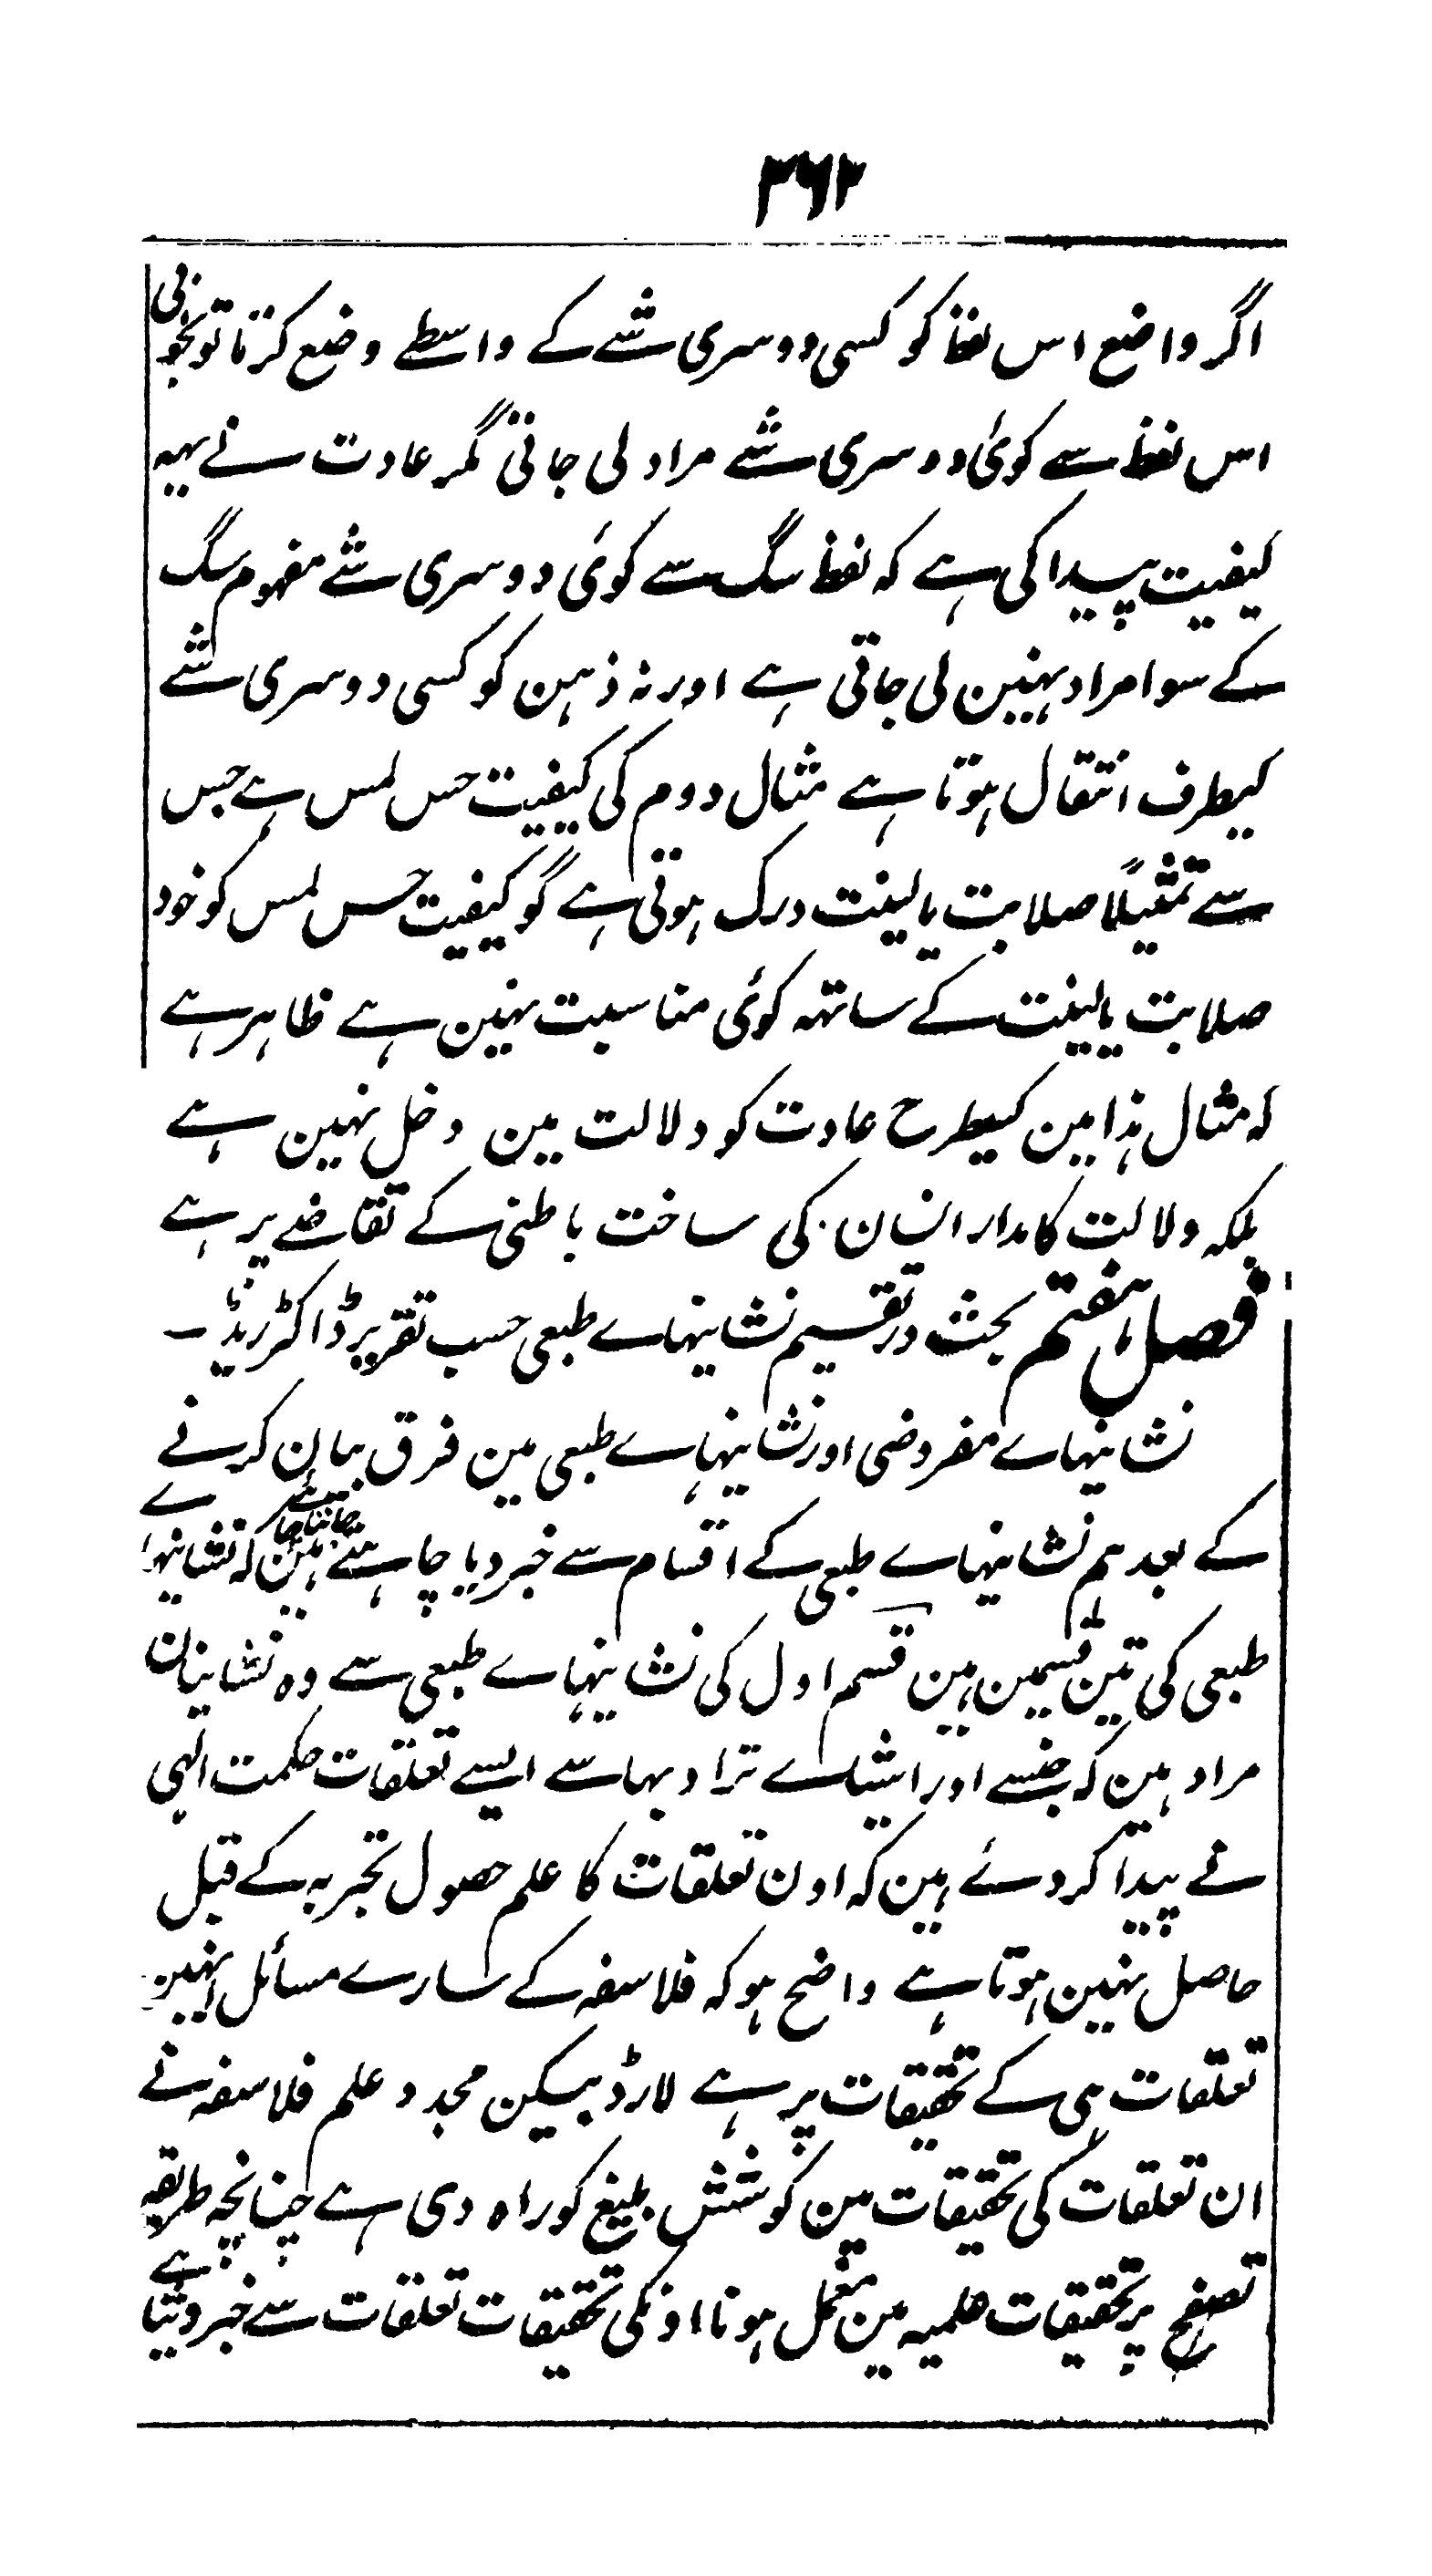 ۳۶۲
اگر واضع اس لفظ کو کسی دوسری شے کے واسطے وضع کرتا تو بخوبی
اس لفظ سے کوئی دوسری شے مراد لی جاتی مگر عادت نے یہہ
کیفیت پیدا کی ہے کہ لفظ سگ سے کوئی دوسری شے مفہوم سگ
کے سوا مراد نہین لی جاتی ہے اور نہ ذہن کو کسی دوسری شے
کیطرف انتقال ہوتا ہے مثال دوم کی کیفیت حس لمس ہے جس
سے تمثیلًا صلابت یا لینت درک ہوتی ہے گو کیفیت حس لمس کو خود
صلابت یا لینت کے ساتھہ کوئی مناسبت نہین ہے ظاہر ہے
کہ مثال ہذا مین کسیطرح عادت کو دلالت مین دخل نہین ہے
بلکہ دلالت کا مدار انسان کی ساخت باطنی کے تقاضے پر ہے
فصل ہفتم بحث در تقسیم نشانیہاے طبعی حسب تقریر ڈاکٹر ریڈ۔
نشانیہاے مفروضی اور نشانیہاے طبعی مین فرق بیان کرنے
کے بعد ہم نشانیہاے طبعی کے اقسام سے خبر دیا چاہتے ہین جاننا چاہئے کہ نشانیہاے
طبعی کی تین قسمین ہین قسم اول کی نشانیہاے طبعی سے وہ نشانیان
مراد ہین کہ جنسے اور اشیاے سے ایسے تعلقات حکمت الٰہی
نے پیدا کردئے ہین کہ اون تعلقات کا علم حصول تجربہ کے قبل
حاصل نہین ہوتا ہے واضح ہو کہ فلاسفہ کے سارے مسائل انہین
تعلقات ہی کے تحقیقات پر ہے لارڈ بیکن مجدد علم فلاسفہ نے
ان تعلقات کی تحقیقات مین کوشش بلیغ کو راہ دی ہے چنانچہ طریقہ
تصفح پر تحقیقات علمیہ مین ہونا اونکی تحقیقات تعلقات سے خبر دیتا ہے